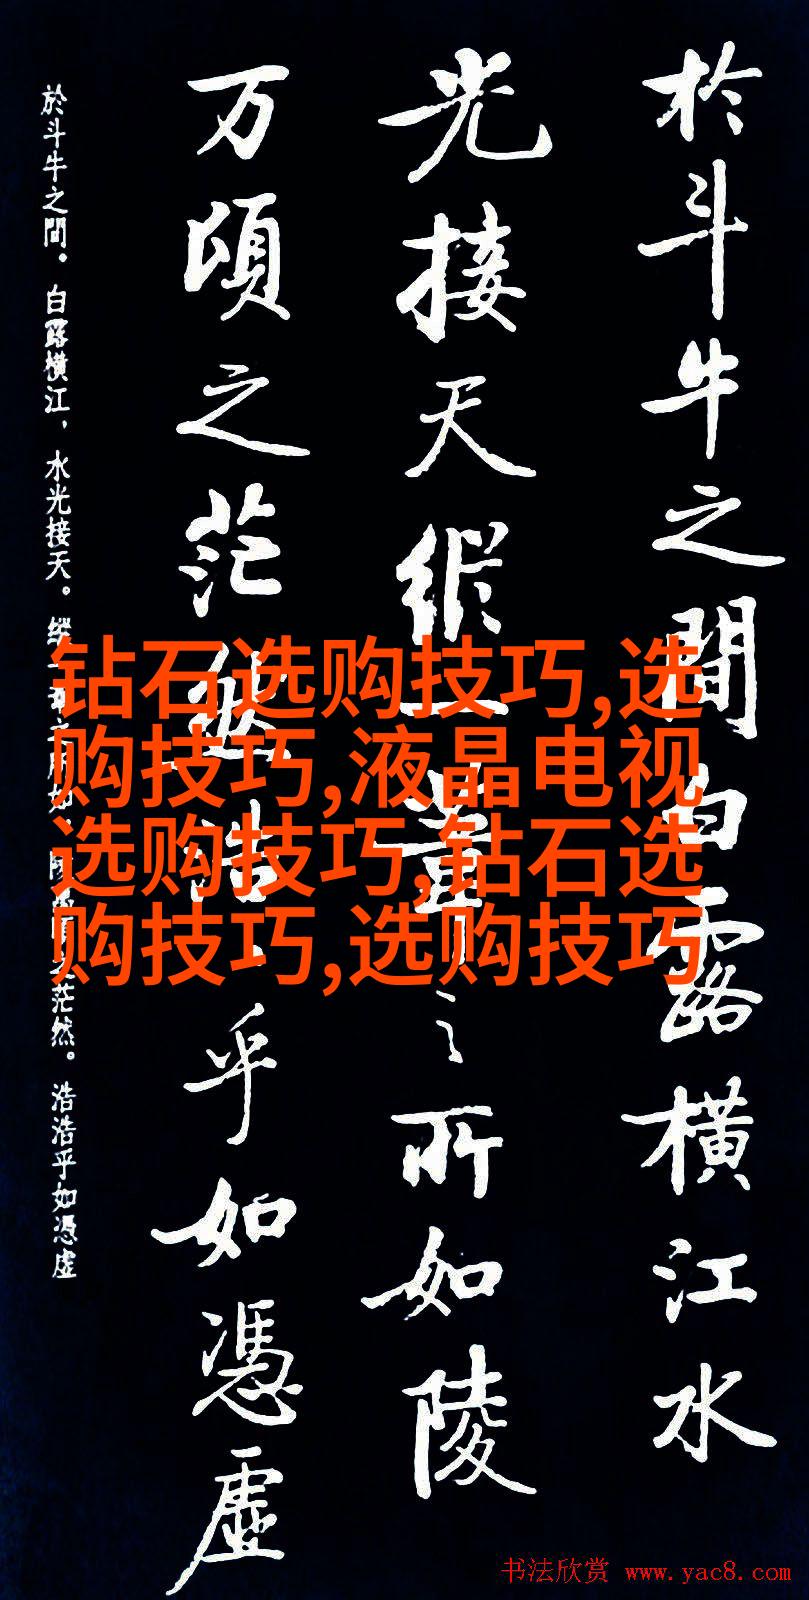 於斗牛之間白露橫江水
光接天縱一葦之所如陵
万頃之茫然浩乎如憑虛
於斗牛之間。白露橫江,水光接天。纵一之所如,陵之茫然。浩浩乎如憑虛
钻石选购技巧,选
购技巧,液晶电视
选购技巧,钻石选
购技巧,选购技巧
书法欣赏 www.yac8.com